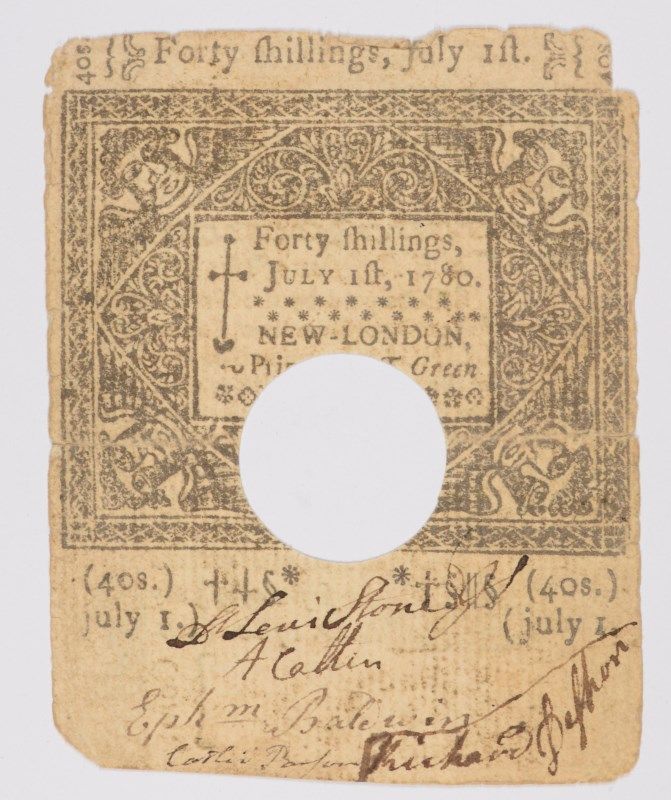 40s Forty ſhillings, July 1ſt. 40s
Forty ſhillings,
JULY 1ſt, 1780.
NEW-LONDON,
T Green
(40s.) ‡‡§* *‡§‡§ (40s.)
july 1.) (july 1.
Levi Stone
A Catlin
Ephm Baldwin
Richard